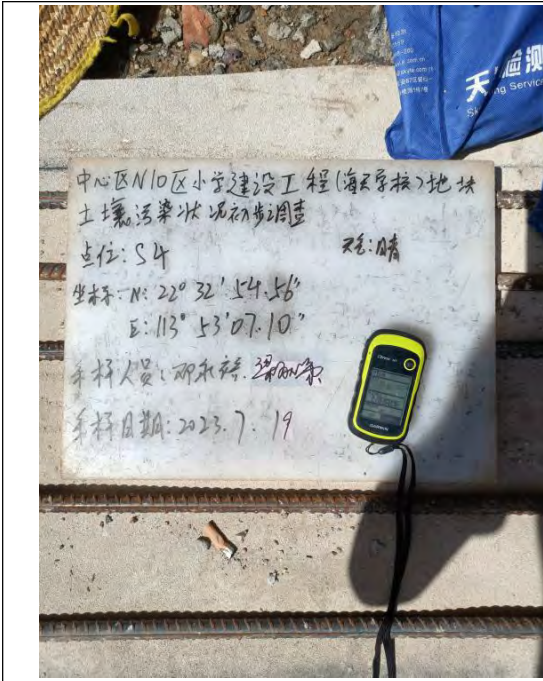 天 检测
Servic
中心区N10区小学建设工程(海天学校)地块
土壤污染状况初步调查
点位:S4
天气:晴
坐标:N:22°32'54.56"
E:113°53'07.10"
采样人员:邓
采样日期:2023.7.19
GARMIN